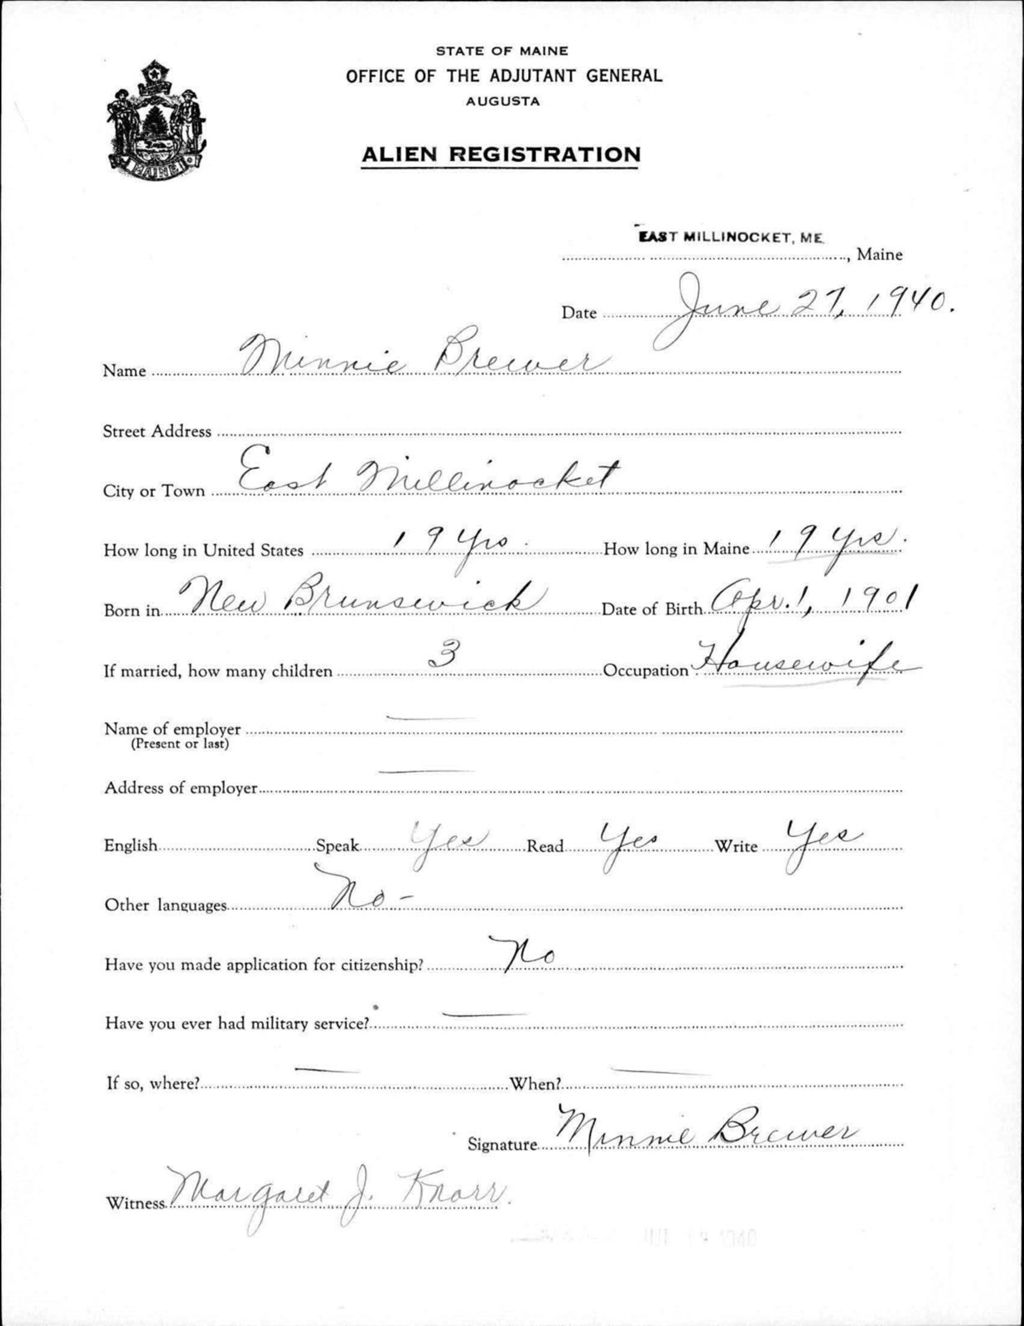 STATE OF MAINE
OFFICE OF THE ADJUTANT GENERAL
AUGUSTA
ALIEN REGISTRATION
MAINE
EAST MILLINOCKET, ME.
, Maine
Date June 27, 1940.
Name Minnie Brewer
Street Address
City or Town East Millinocket
How long in United States 19 Yrs. How long in Maine 19 Yrs.
Born in New Brunswick Date of Birth Apr. 1, 1901
If married, how many children 3 Occupation Housewife
Name of employer —
(Present or last)
Address of employer —
English Speak Yes Read Yes Write Yes
Other languages No -
Have you made application for citizenship? No
Have you ever had military service? —
If so, where? — When? —
Signature Minnie Brewer
Witness Margaret J. Knorr.
1940